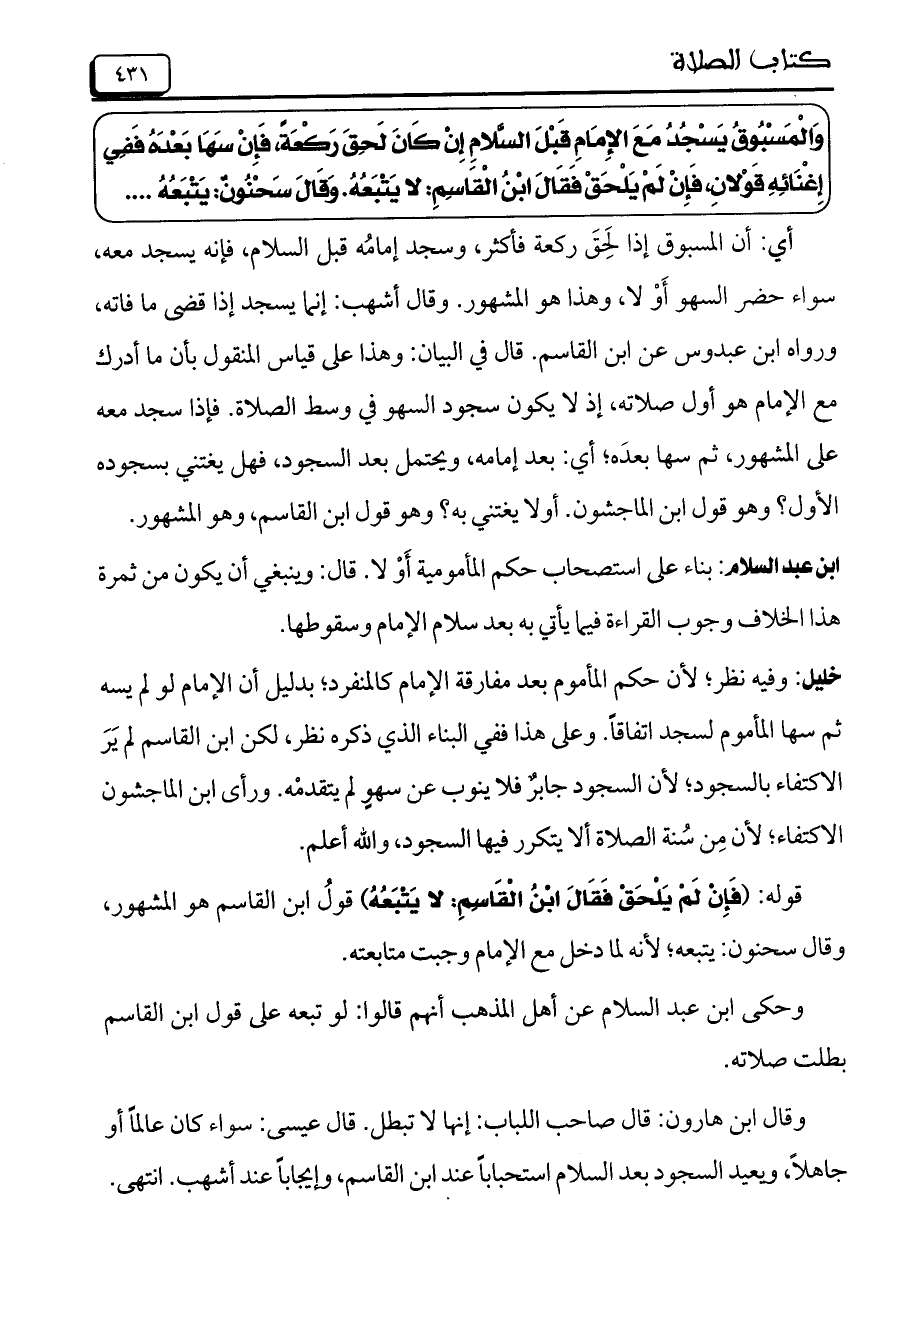 كتاب الصلاة
٤٣١
وَالْمَسْبُوقُ يَسْجُدُ مَعَ الإِمَامِ قَبْلَ السَّلامِ إِنْ كَانَ لَحِقَ رَكْعَةً، فَإِنْ سَهَا بَعْدَهُ فَفِي
إِغْنَائِهِ قَوْلانِ، فَإِنْ لَمْ يَلْحَقْ فَقَالَ ابْنُ الْقَاسِمِ: لا يَتْبَعُهُ. وَقَالَ سَحْنُونٌ: يَتْبَعُهُ ....
أي: أن المسبوق إذا لَحِقَ ركعة فأكثر، وسجد إمامُه قبل السلام، فإنه يسجد معه،
سواء حضر السهو أَوْ لا، وهذا هو المشهور. وقال أشهب: إنما يسجد إذا قضى ما فاته،
ورواه ابن عبدوس عن ابن القاسم. قال في البيان: وهذا على قياس المنقول بأن ما أدرك
مع الإمام هو أول صلاته، إذ لا يكون سجود السهو في وسط الصلاة. فإذا سجد معه
على المشهور، ثم سها بعدَه؛ أي: بعد إمامه، ويحتمل بعد السجود، فهل يغتني بسجوده
الأول؟ وهو قول ابن الماجشون. أولا يغتني به؟ وهو قول ابن القاسم، وهو المشهور.
ابن عبد السلام: بناء على استصحاب حكم المأمومية أَوْ لا. قال: وينبغي أن يكون من ثمرة
هذا الخلاف وجوب القراءة فيما يأتي به بعد سلام الإمام وسقوطها.
خليل: وفيه نظر؛ لأن حكم المأموم بعد مفارقة الإمام كالمنفرد؛ بدليل أن الإمام لو لم يسه
ثم سها المأموم لسجد اتفاقاً. وعلى هذا ففي البناء الذي ذكره نظر، لكن ابن القاسم لم يَرَ
الاكتفاء بالسجود؛ لأن السجود جابرٌ فلا ينوب عن سهوٍ لم يتقدمْه. ورأى ابن الماجشون
الاكتفاء؛ لأن مِن سُنة الصلاة ألا يتكرر فيها السجود، والله أعلم.
قوله: (فَإِنْ لَمْ يَلْحَقْ فَقَالَ ابْنُ الْقَاسِمِ: لا يَتْبَعُهُ) قولُ ابن القاسم هو المشهور،
وقال سحنون: يتبعه؛ لأنه لما دخل مع الإمام وجبت متابعته.
وحكى ابن عبد السلام عن أهل المذهب أنهم قالوا: لو تبعه على قول ابن القاسم
بطلت صلاته.
وقال ابن هارون: قال صاحب اللباب: إنها لا تبطل. قال عيسى: سواء كان عالماً أو
جاهلاً، ويعيد السجود بعد السلام استحباباً عند ابن القاسم، وإيجاباً عند أشهب. انتهى.